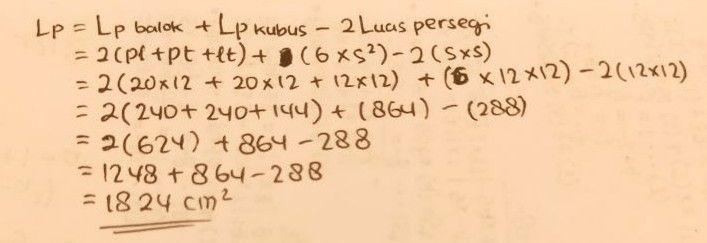 Lp = Lp balok + Lp kubus - 2 Luas persegi
= 2(pl + pt + lt) + (6 × s²) - 2(s×s)
= 2(20×12 + 20×12 + 12×12) + (6 × 12 × 12) - 2(12×12)
= 2(240 + 240 + 144) + (864) - (288)
= 2(624) + 864 - 288
= 1248 + 864 - 288
= 1824 cm²